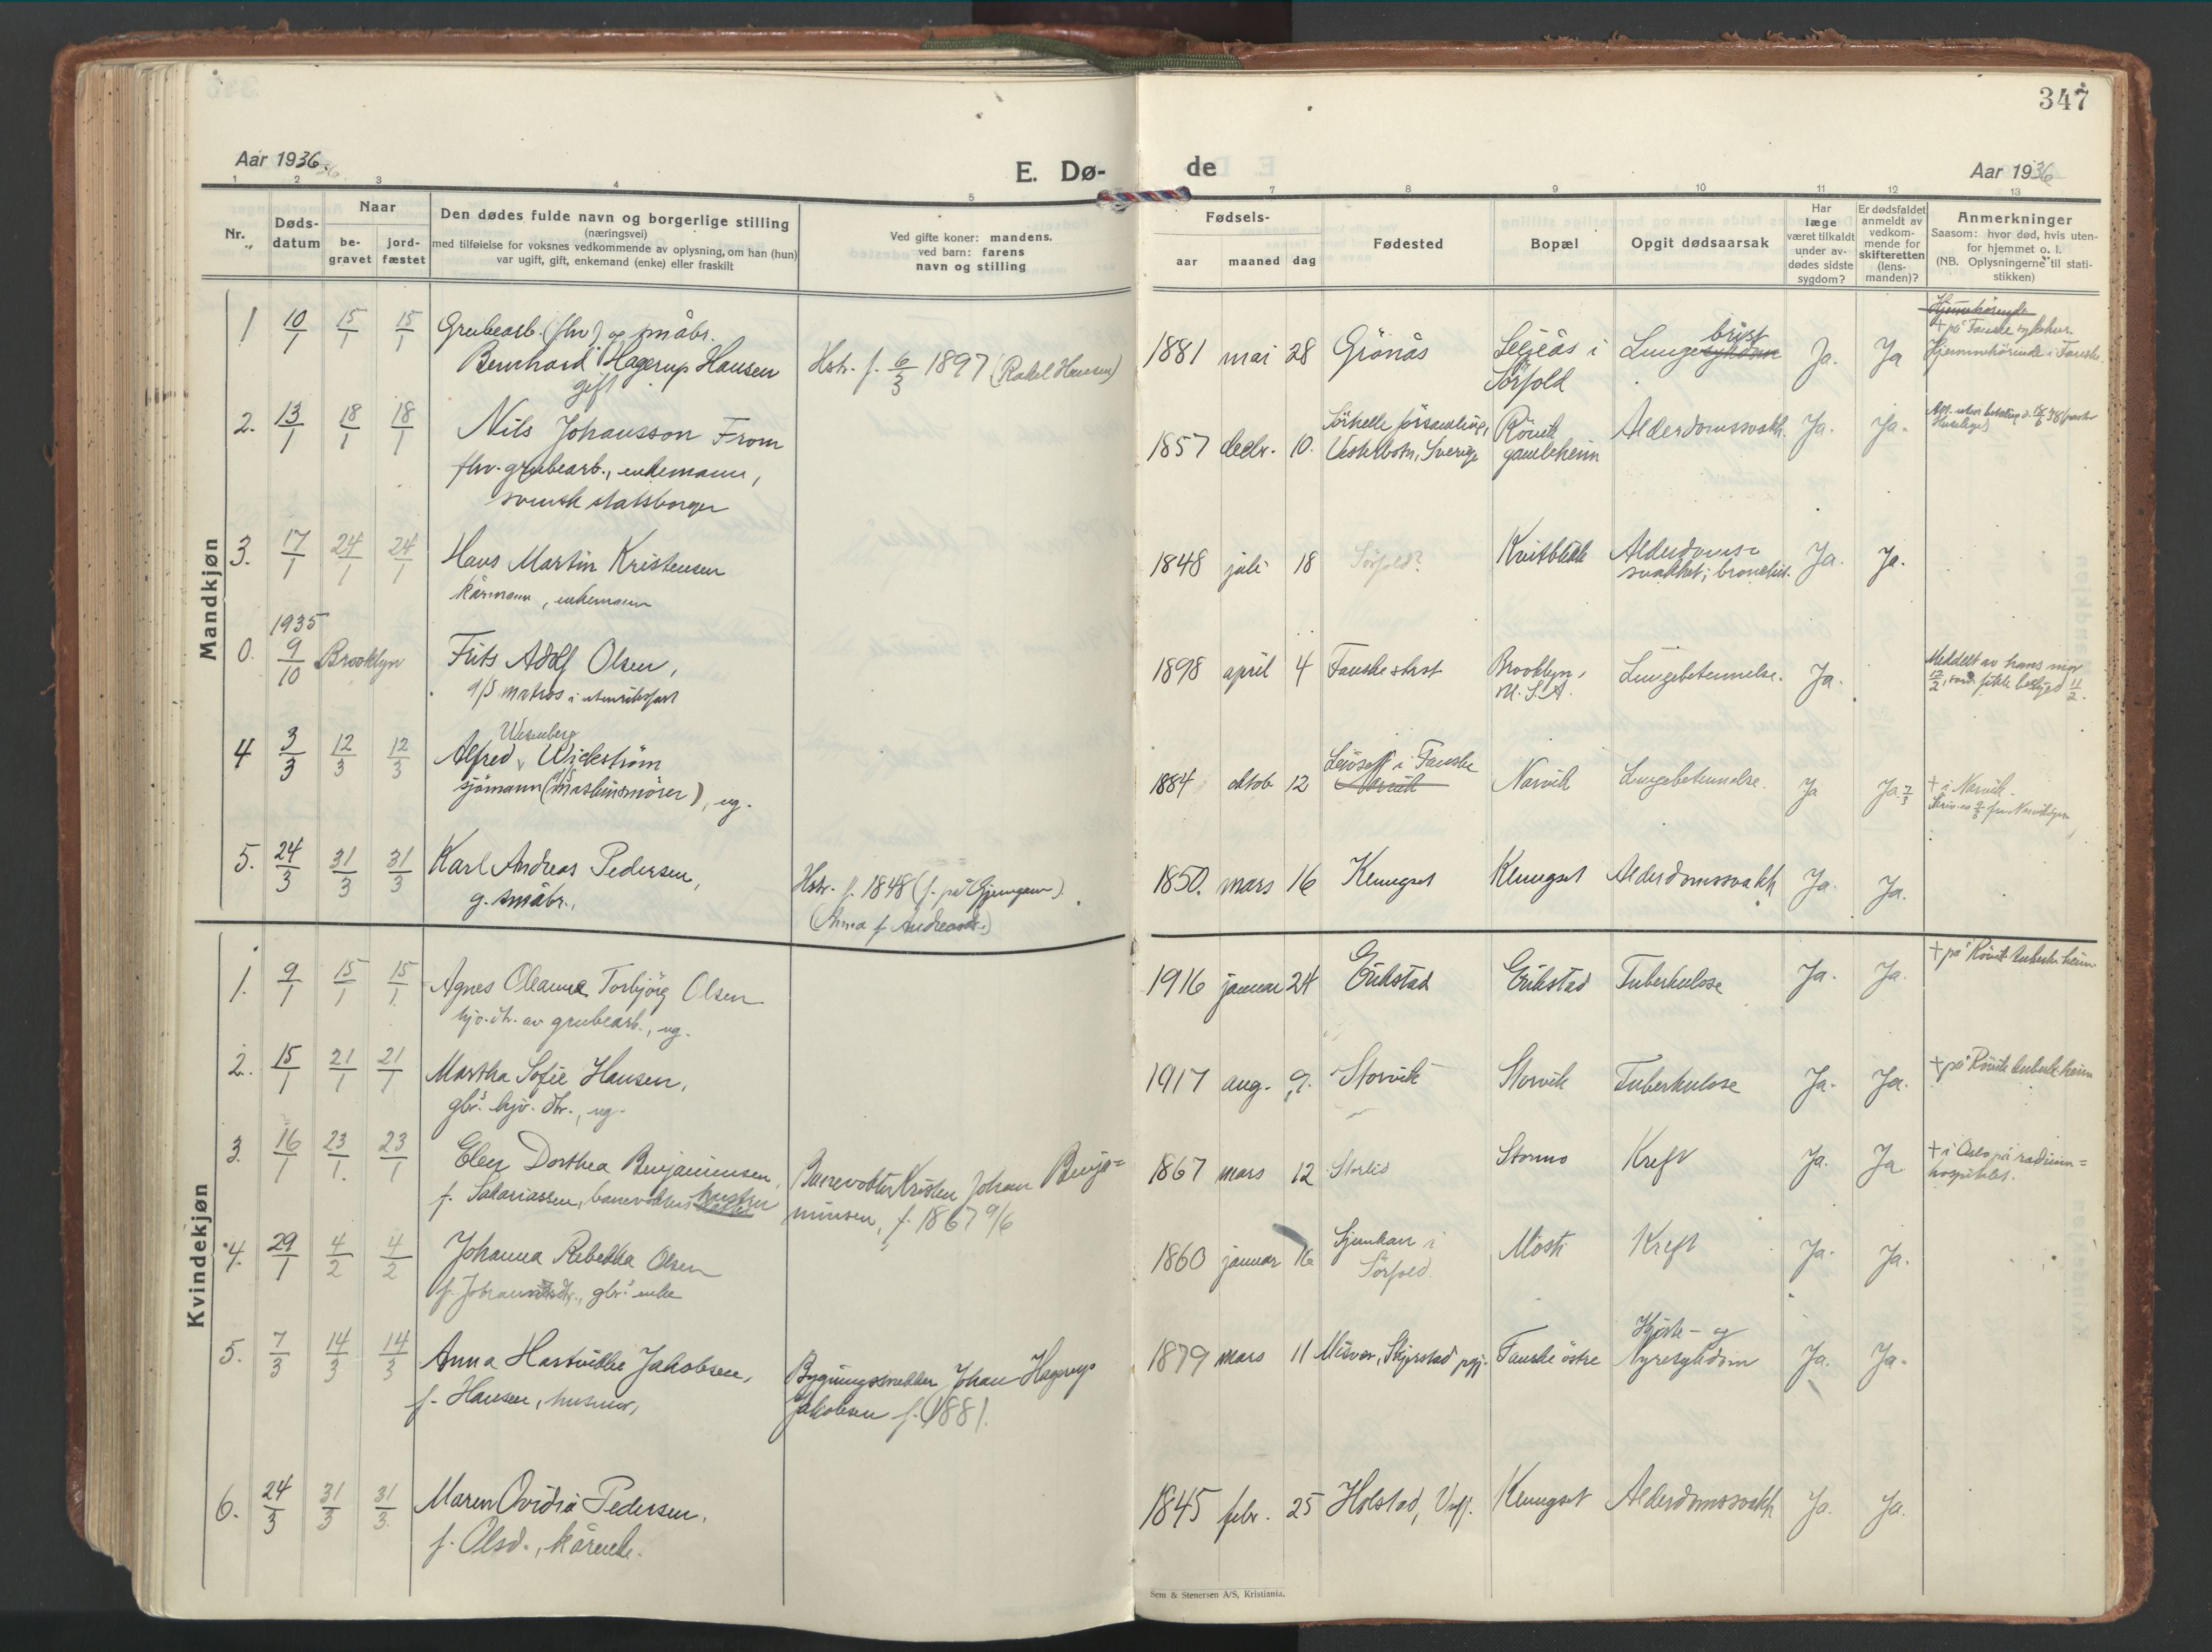 347
Aar 1936.
E. Dø-
de
Aar 1936
1 2 3 4 5 7 8 9 10 11 12 13
Nr.
Døds-
datum
Naar
be-
gravet
jord-
fæstet
Den dødes fulde navn og borgerlige stilling
(næringsvei)
med tilføielse for voksnes vedkommende av oplysning, om han (hun)
var ugift, gift, enkemand (enke) eller fraskilt
Ved gifte koner: mandens,
ved barn: farens
navn og stilling
Fødsels-
aar maaned dag
Fødested
Bopæl
Opgit dødsaarsak
Har
læge
været tilkaldt
under av-
dødes sidste
sygdom?
Er dødsfaldet
anmeldt av
vedkom-
mende for
skifteretten
(lens-
manden)?
Anmerkninger
Saasom: hvor død, hvis uten-
for hjemmet o. l.
(NB. Oplysningerne til stati-
stikken)
Mandkjøn
1 10/1 15/1 15/1 Grubearb. (fhv.) og småbr.
Bernhard Hagerup Hansen
gift
Hstr. f. 6/3 1897 (Rakel Hansen)
1881 mai 28 Grönås
i
Sörfold
Lungesykdom
brist
Ja. Ja
Hjemmehörende
+ på Fauske sykehus.
Hjemmehörende i Fauske.
2. 13/1 18/1 18/1 Nils Johansson From
fhv. grubearb., enkemann,
svensk statsborger
1857 decbr. 10.
Vesterbotn, Sverige
Rövik
gamleheim
Alderdomssvakh. Ja. Ja.
3. 17/1 24/1 24/1 Hans Martin Kristensen
kårmann, enkemann
1848 juli 18 Sörfold? Kvitblikk Alderdoms-
svakhet; bronchit. Ja. Ja.
0. 1935
9/10 Brooklyn Frits Adolf Olsen,
matros i utenriksfart
1898 april 4 Fauske Brooklyn,
U. S. A.
Lungebetennelse. Ja.
Meddelt av hans mor
12/2, som fikk beskjed 11/2.
4 3/3 12/3 12/3 Wesenberg
Alfred Wickström
sjömann (maskinsmörer), ug.
1884 oktob 12 i Fauske
Narvik
Narvik Lungebetennelse. Ja Ja 7/3
+ i Narvik.
5. 24/3 31/3 31/3 Karl Andreas Pedersen,
g. småbr.,
Hstr. f. 1848 (f. på Gjemgam)
(Anna f. Andreasdr.)
1850. mars 16 Klungset Klungset Alderdomssvakh Ja. Ja.
Kvindekjøn
1. 9/1 15/1 15/1 Agnes Oleanne Torbjörg Olsen
hjv. dtr. av grubearb., ug.
1916 januar 24 Erikstad Erikstad Tuberkulose Ja. Ja.
+ på Rövik tuberk. heim
2. 15/1 21/1 21/1 Martha Sofie Hansen,
gbr.s hjv. dtr., ug.
1917 aug. 9. Storvik Storvik Tuberkulose Ja. Ja.
+ på Rövik tuberk. heim
3. 16/1 23/1. 23/1 Elen Dorthea Benjaminsen,
f. Sakariassen, banevokters hustru
Banevokter Kristen Johan Benja=
minsen, f. 1867 9/6
1867 mars 12 Storlid Stormo Kreft Ja. Ja
+ i Oslo på radium=
hospitalet.
4. 29/1 4/2 4/2 Johanna Rebekka Olsen
f. Johannesdtr., gbr.s enke
1860 januar 16 i
Sörfold.
Mosti Kreft Ja. Ja.
5. 7/3 14/3 14/3 Anna Hartvikke Jakobsen,
f. Hansen, husmor,
Bygningssnekker Johan Hagerup
Jakobsen f. 1881.
1879 mars 11 Misvær, Skjerstad pgj. Fauske östre
Hjerte- og
Nyresykdom Ja. Ja.
6. 24/3 31/3 31/3. Maren Ovidia Pedersen,
f. Olsd., kårenke.
1845 febr. 25 Holstad, Klungset Alderdomssvakh Ja. Ja.
Sem & Stenersen A/S, Kristiania.